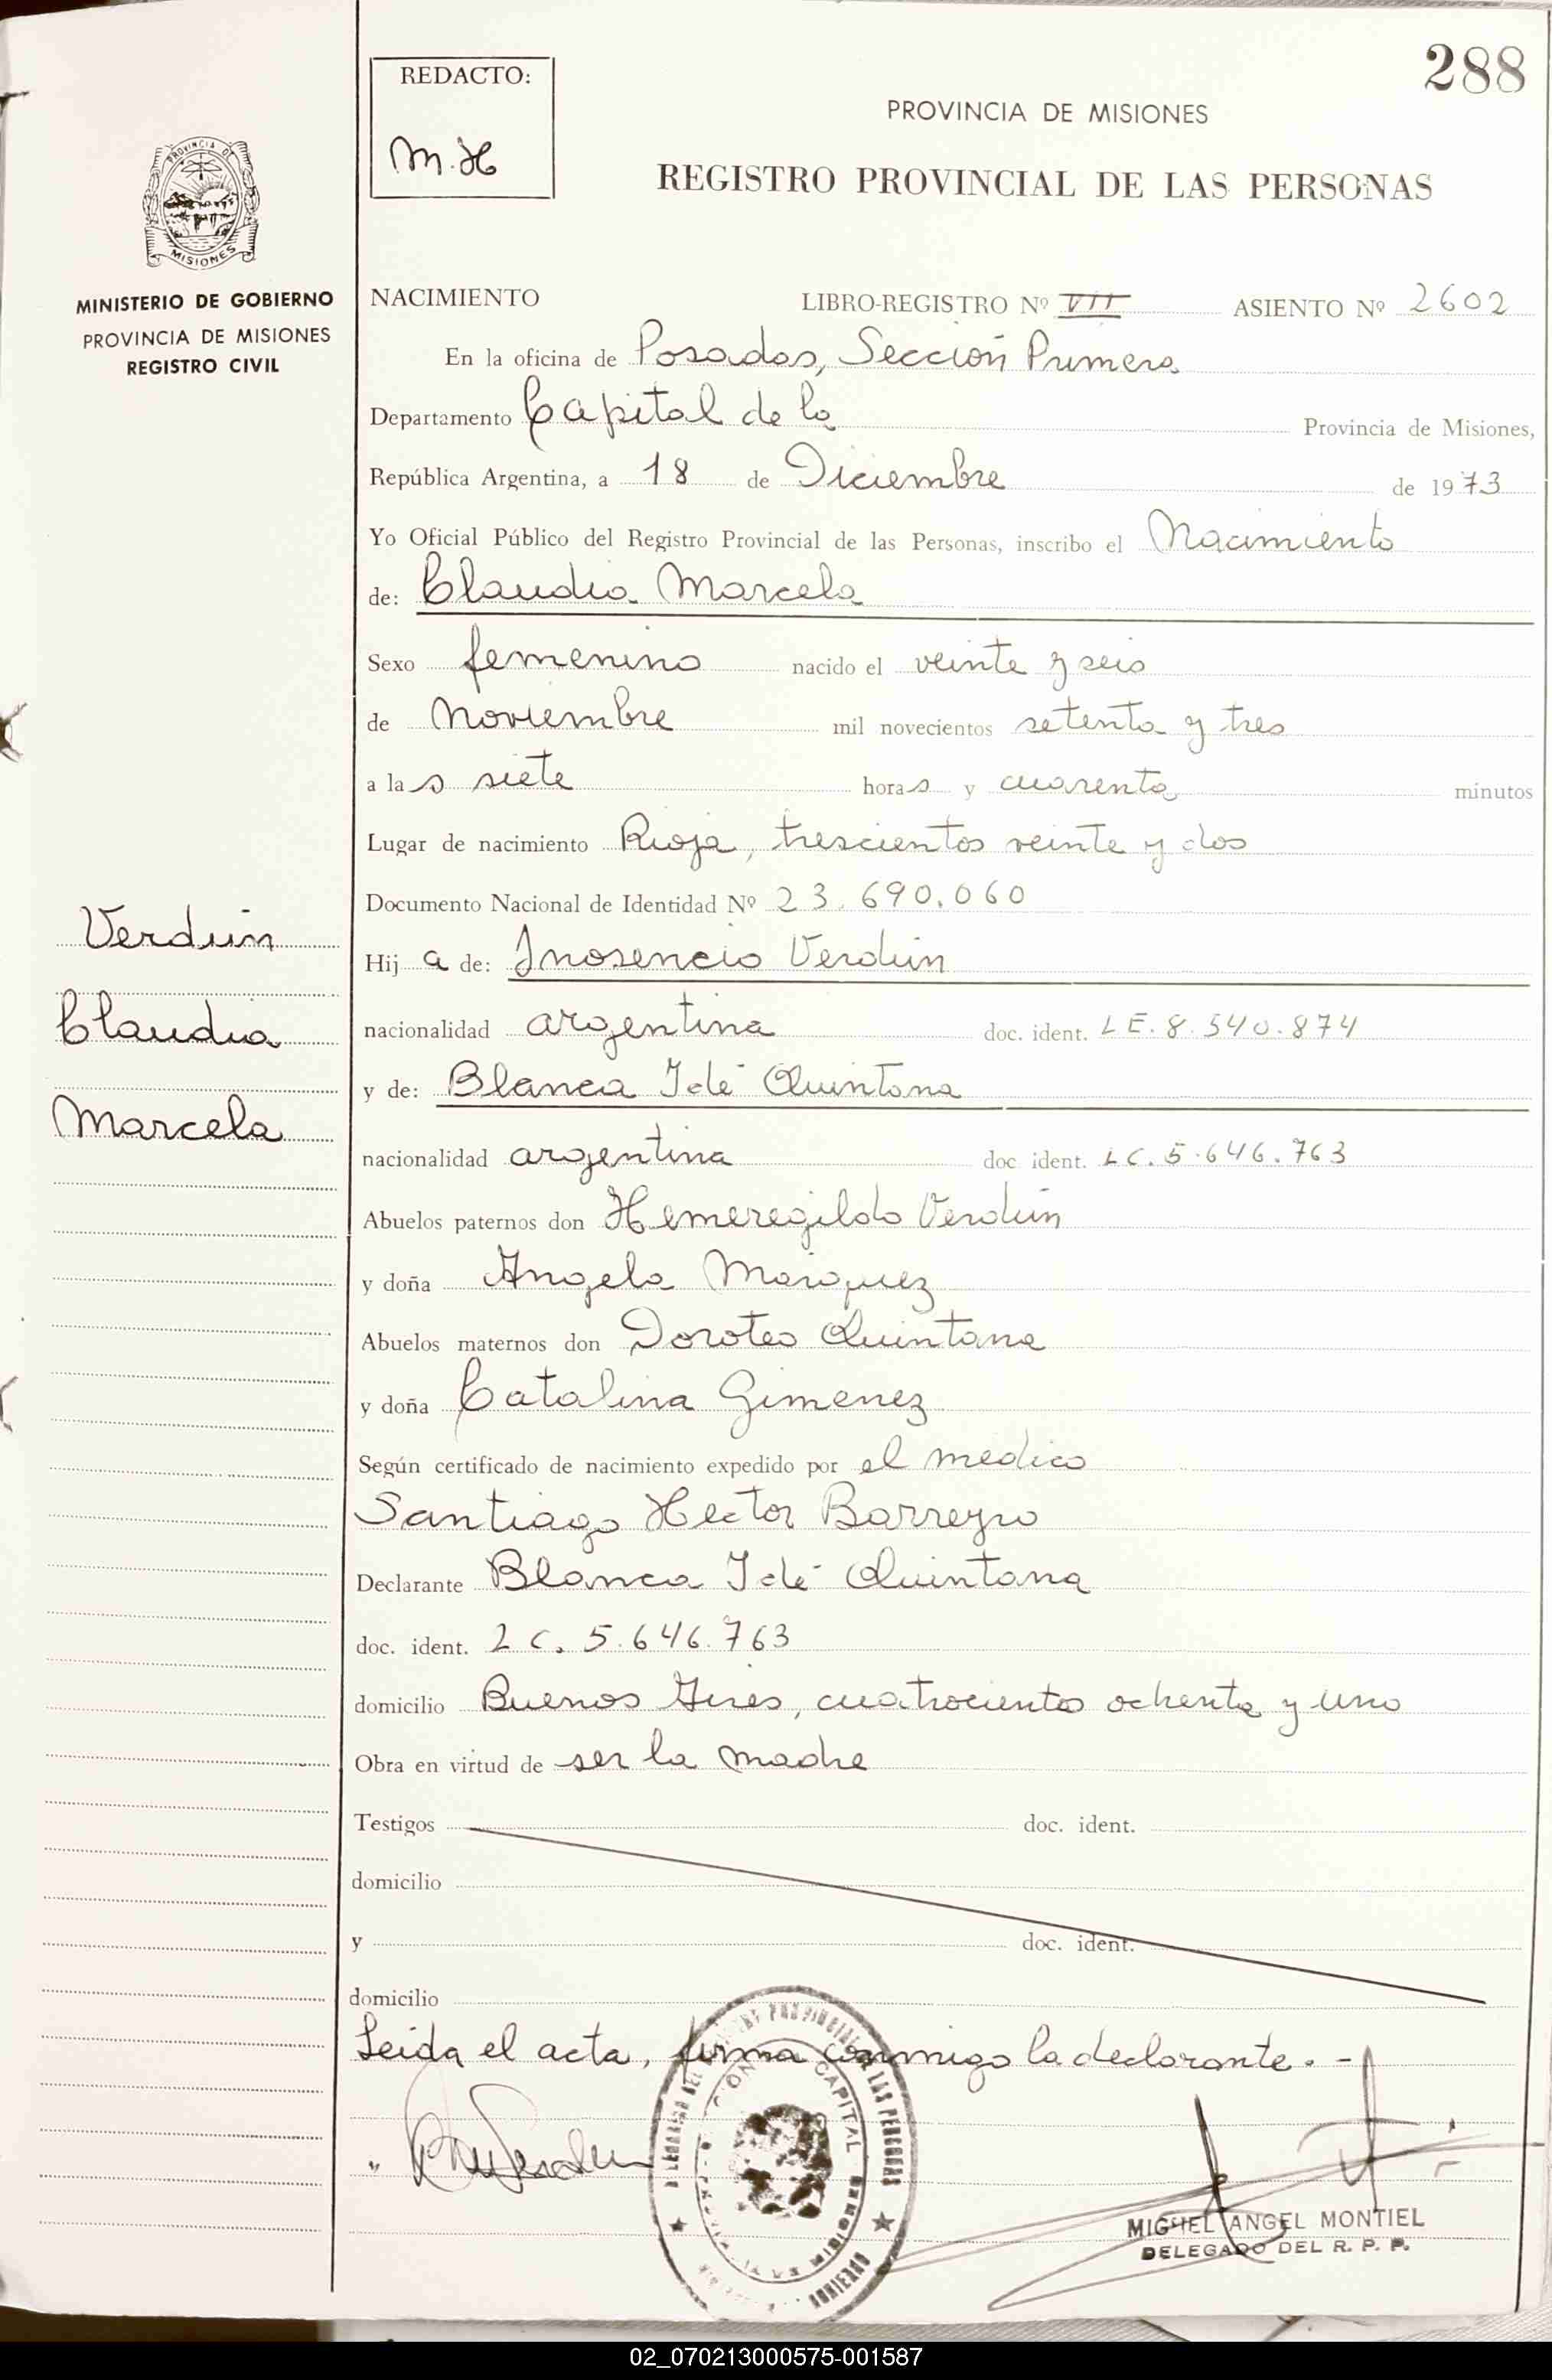 288
REDACTO:
M.H
PROVINCIA DE MISIONES
REGISTRO PROVINCIAL DE LAS PERSONAS
PROVINCIA DE
MISIONES
MINISTERIO DE GOBIERNO
PROVINCIA DE MISIONES
REGISTRO CIVIL
NACIMIENTO LIBRO-REGISTRO Nº VII ASIENTO Nº 2602
En la oficina de Posadas, Sección Primera
Departamento Capital de la Provincia de Misiones,
República Argentina, a 18 de Diciembre de 1973
Yo Oficial Público del Registro Provincial de las Personas, inscribo el Nacimiento
de: Claudia Marcela
Sexo femenino nacido el veinte y seis
de Noviembre mil novecientos setenta y tres
a las siete horas y cuarenta minutos
Lugar de nacimiento Rioja, trescientos veinte y dos
Documento Nacional de Identidad Nº 23.690.060
Verdún
Claudia
Marcela
Hija de: Inosencio Verdún
nacionalidad argentina doc. ident. LE. 8.540.874
y de: Blanca Idé Quintana
nacionalidad argentina doc ident. LC. 5.646.763
Abuelos paternos don Hemeregildo Verdún
y doña Angela Marquez
Abuelos maternos don Doroteo Quintana
y doña Catalina Gimenez
Según certificado de nacimiento expedido por el medico
Santiago Hector Barreyro
Declarante Blanca Idé Quintana
doc. ident. LC. 5.646.763
domicilio Buenos Aires, cuatrocientos ochenta y uno
Obra en virtud de ser la madre
Testigos doc. ident.
domicilio
y doc. ident.
domicilio
Leida el acta, firma conmigo la declarante. -
MIGUEL ANGEL MONTIEL
DELEGADO DEL R. P. P.
02_070213000575-001587